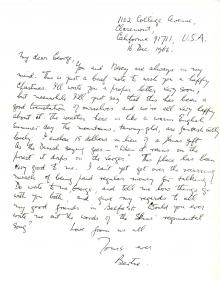 1102 College Avenue,
Claremont,
California 91711, U.S.A.
16 Dec. 1982.
My dear George,
You and Mercy are always in my
mind. This is just a brief note to wish you a happy
Christmas. I'll write you a proper letter very soon,
but meanwhile I'll just say that this has been a
good translation of ourselves and we're all very happy
about it. The weather here is like a warm English
summer day. The mountains, tawny-gold, are fantastically
lovely.
As the Danish saying goes - "When it rains on the
priest it drips on the verger." This place has been
very good to me. I can't yet get over the
of being paid regular money for talking!
Do write to me, George, and tell me how things go
with you both, and give my regards to all
my good friends in Belfast. Could you ever
write me out the words of the regimental
song?
Love from us all
Yours ever
Bertie.